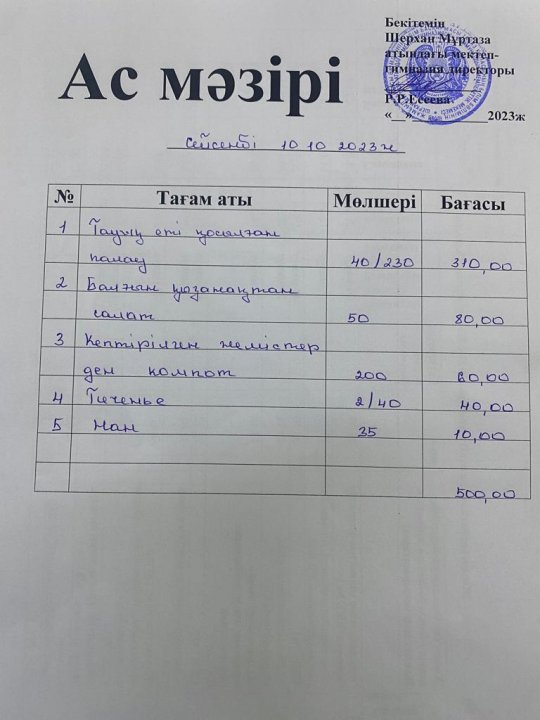 Бекітемін
Шерхан Мұртаза
атындағы мектеп-
гимназия директоры
Р.Р.Есеева
«__»___________2023ж
Ас мәзірі
сейсенбі 10 10 2023ж
№ Тағам аты Мөлшері Бағасы
1 Тауық еті қосылған
палау 40/230 310,00
2 Балғын қазанақтан
салат 50 80,00
3 Кептірілген жемістер
ден компот 200 60,00
4 Печенье 2/40 40,00
5 Нан 35 10,00
500,00